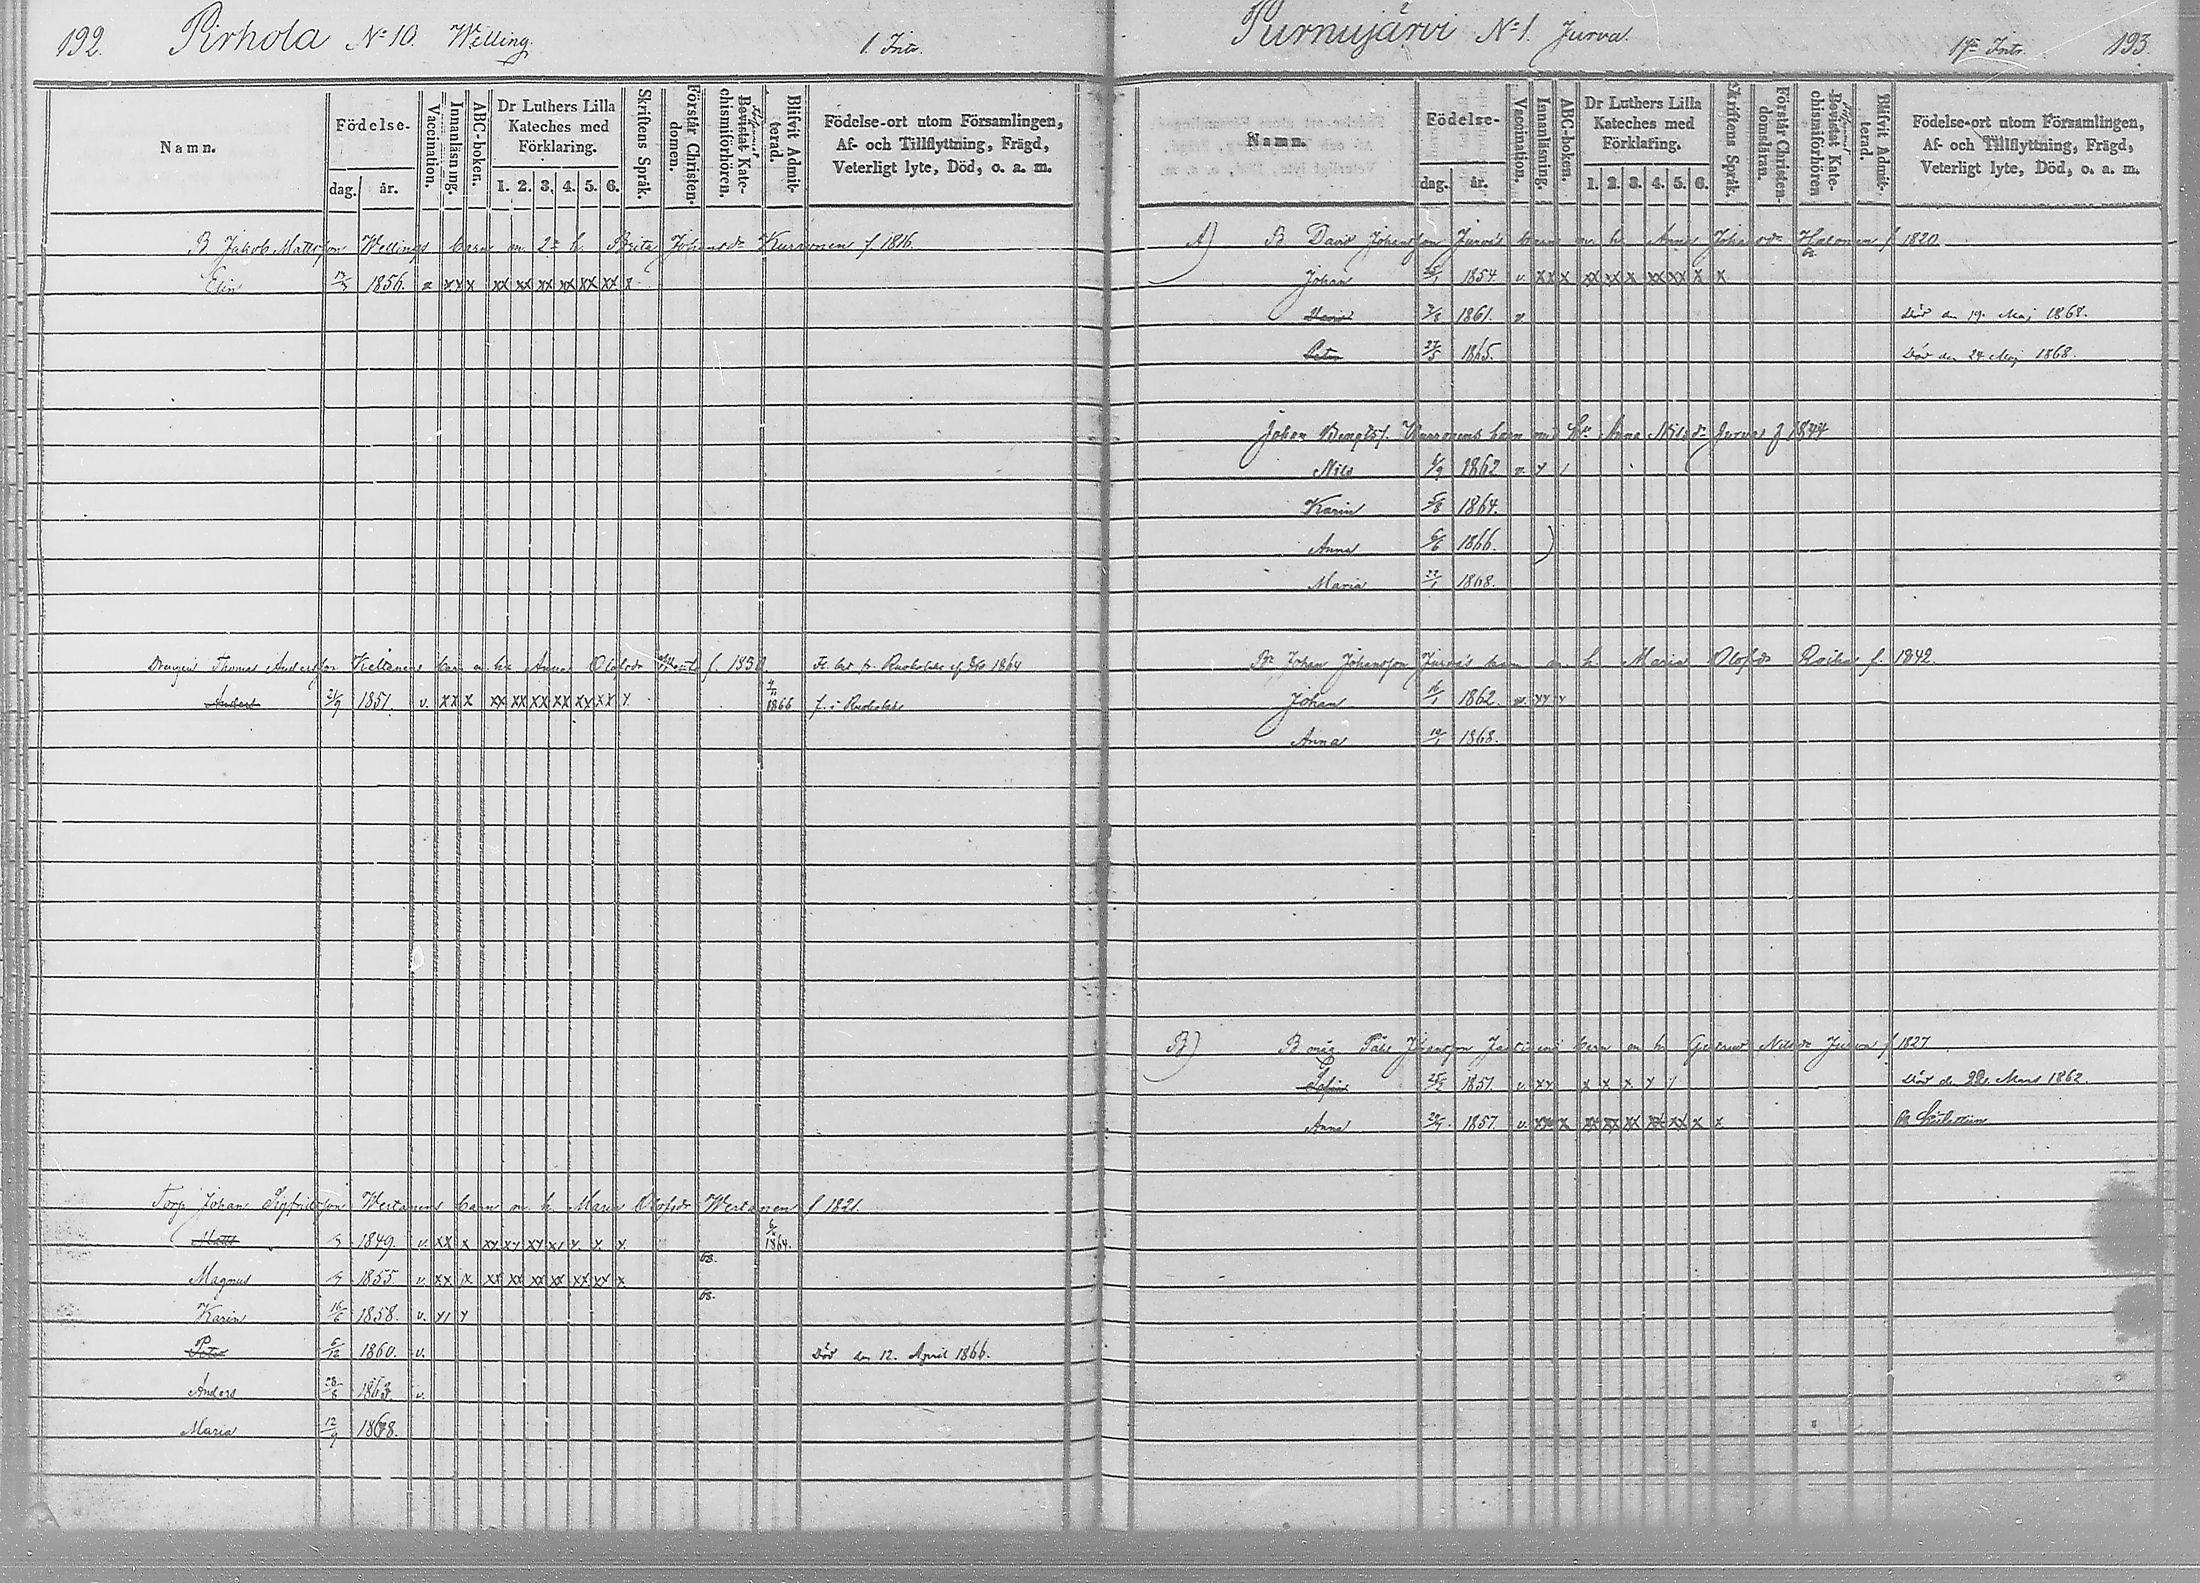 192. Pirhola No 10. Welling. 1 Intr.
Namn. Födelse- dag. år. Vaccination. Innanläsning. ABC-boken. Dr Luthers Lilla Kateches med Förklaring. 1. 2. 3. 4. 5. 6. Skriftens Språk. Förstår Christendomen. Bevistat Katechismiförhören. Blifvit Admitterad. Födelse-ort utom Församlingen, Af- och Tillflyttning, Frägd, Veterligt lyte, Död, o. a. m.
B Jakob Mattsson Wellings barn m 2a h. Brita Johansdr Kurronen f 1816.
Elin 1856. v xx x xx xx xx xx xx xx x
Drengen Thomas Andersson Kieltanens barn m h Anna Olofsdr f. 1830 1864
Anders 21/9 1851. v. xx x xx xx xx xx xx xx x. 1866
Torp Johan Sigfridsson Wertanens barn m h Maria Olofsdr Wertanen f 1821.
Matts 1849. v. xx x xx xx xx xx x. x. x. 1864.
Magnus 1855. v. xx x xx xx xx xx xx xx x 68.
Karin 16/6 1858. v. 68.
Peter 5/12 1860. v. Död den 12. April 1866.
Anders 28/8 1863. v.
Maria 12/9 1868.
Purnujärvi No 1. Jurva. Intr. 193
Namn. Födelse- dag. år. Vaccination. Innanläsning. ABC-boken. Dr Luthers Lilla Kateches med Förklaring. 1. 2. 3. 4. 5. 6. Skriftens Språk. Förstår Christendomsläran. Bevistat Katechismiförhören Blifvit Admitterad. Födelse-ort utom Församlingen, Af- och Tillflyttning, Frägd, Veterligt lyte, Död, o. a. m.
A) B David Johansson Jurva's barn m h. Anna Johansdr f 1820.
Johan 1854. v. xx x xx xx x xx xx x x
David 7/8 1861. v. Död den 19. Maj 1868.
Peter 27/5 1865. Död den 24 Maj 1868.
Johan Bengtss. Kurronens barn m h Anna Nilsdr Jurva f 1844
Nils 6/9 1862 v.
Karin 5/8 1864.
Anna 6/6 1866.
Maria 22/1 1868.
Johan Johansson Jurva's barn m h. Maria Olofsdr f. 1842.
Johan 16/1 1862. v.
Anna 19/1 1868.
B) B måg Påhl Johansson barn m h Nilsdr Jurva f 1827
Sofia 25/2 1851. v. xx x x x Död d. 22. Mars 1862.
Anna 1857. v. xx x xx xx xx xx xx x x